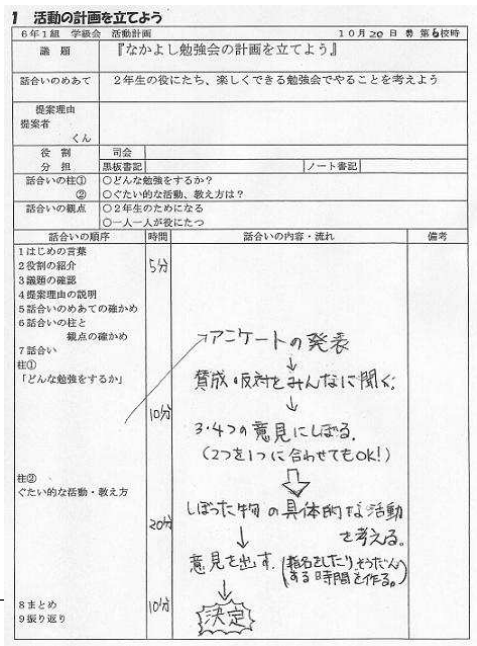 1 活動の計画を立てよう
6年1組 学級会 活動計画 10月20日 第6校時
議題 『なかよし勉強会の計画を立てよう』
話合いのめあて 2年生の役にたち、楽しくできる勉強会でやることを考えよう
提案理由
提案者
くん
役割 司会
分担 黒板書記 ノート書記
話合いの柱① ○どんな勉強をするか?
② ○ぐたい的な活動、教え方は?
話合いの観点 ○2年生のためになる
○一人一人が役にたつ
話合いの順序 時間 話合いの内容・流れ 備考
1はじめの言葉
2役割の紹介 5分
3議題の確認
4提案理由の説明
5話合いのめあての確かめ
6話合いの柱と
観点の確かめ
アンケートの発表
7話合い
↓
柱①
「どんな勉強をするか」 賛成・反対をみんなに聞く。
↓
10分
3・4つの意見にしぼる。
(2つを1つに合わせてもOK!)
柱②
ぐたい的な活動・教え方
しぼった物の具体的な活動
20分 を考える。
↓
意見を出す。(指名をしたり、そうだんする時間を作る。)
↓
8まとめ 10分 決定
9振り返り